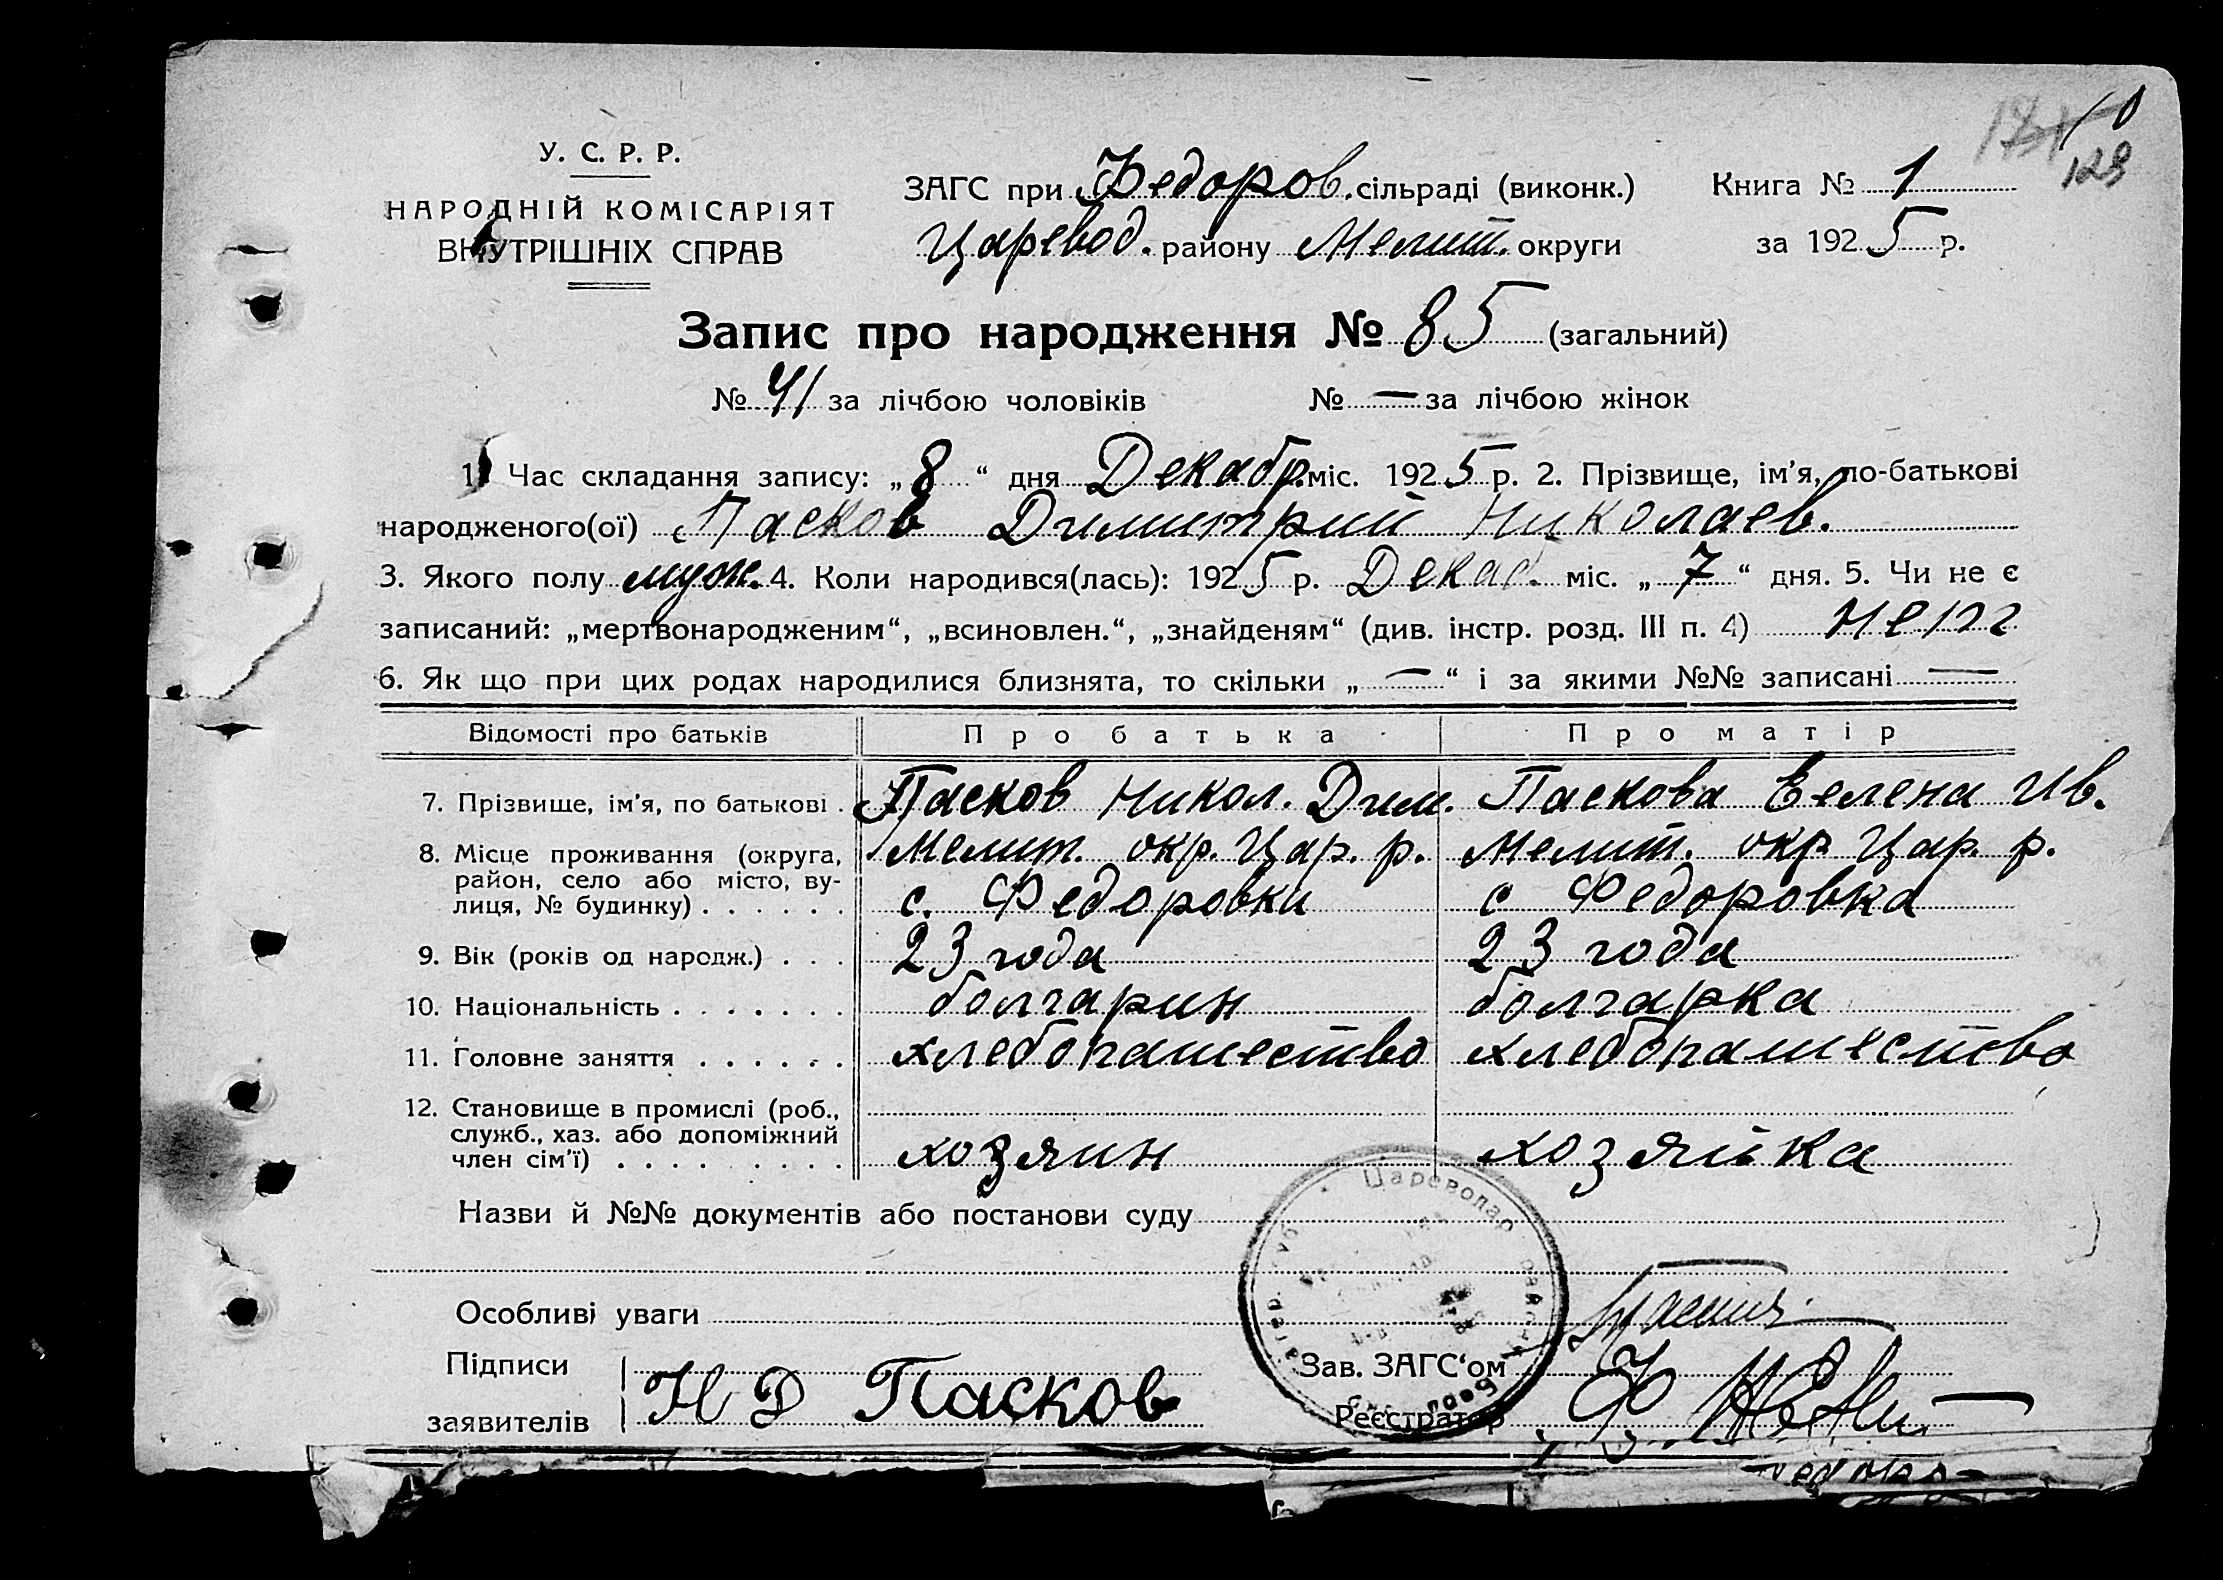 У. С. Р. Р.
НАРОДНІЙ КОМІСАРІЯТ
ВНУТРІШНІХ СПРАВ
129
ЗАГС при Федоров. сільраді (виконк.) Книга № 1
Царевод. району Мелит. округи за 1925 р.
Запис про народження № 85 (загальний)
№ 41 за лічбою чоловіків № — за лічбою жінок
1. Час складання запису: „8“ дня Декабр. міс. 1925 р. 2. Прізвище, ім'я, по-батькові
народженого(ої) Пасков Димитрий Николаев.
3. Якого полу муж. 4. Коли народився(лась): 1925 р. Декаб. міс. „7“ дня. 5. Чи не є
записаний: „мертвонародженим“, „всиновлен.“, „знайденям“ (див. інстр. розд. III п. 4) нет
6. Як що при цих родах народилися близнята, то скільки „—“ і за якими №№ записані —
Відомості про батьків Про батька Про матір
7. Прізвище, ім'я, по батькові . Пасков Никол. Дим. Паскова Елена Ив.
8. Місце проживання (округа, Мелит. окр. Цар. р. Мелит. окр. Цар. р.
район, село або місто, ву-
лиця, № будинку) . . . . . . с. Федоровки с Федоровка
9. Вік (років од народж.) . . . 23 года 23 года
10. Національність . . . . . . . болгарин болгарка
11. Головне заняття . . . . . . хлебопашество хлебопашество
12. Становище в промислі (роб.,
служб., хаз. або допоміжний
член сім'ї) . . . . . . . . . хозяин хозяйка
Назви й №№ документів або постанови суду
Цареводар район
Особливі уваги
Підписи
заявителів
Н Д Пасков
Зав. ЗАГС'ом
Реєстратор